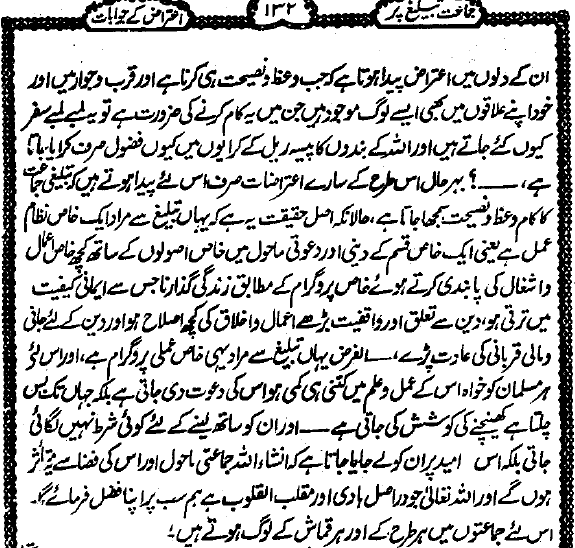 جماعت تبلیغ پر
۱۳۲
اعتراض کے جوابات
ان کے دلوں میں اعتراض پیدا ہوتا ہے کہ جب وعظ و نصیحت ہی کرنا ہے اور قرب و جوار میں اور
خود اپنے علاقوں میں بھی ایسے لوگ موجود ہیں جن میں یہ کام کرنے کی ضرورت ہے تو یہ لمبے لمبے سفر
کیوں کئے جاتے ہیں اور اللہ کے بندوں کا پیسہ ریل کے کرایوں میں کیوں فضول صرف کرایا جاتا
ہے، ——؟ بہر حال اس طرح کے سارے اعتراضات صرف اس لئے پیدا ہوتے ہیں کہ تبلیغی جماعت
کا کام وعظ و نصیحت سمجھا جاتا ہے، حالانکہ اصل حقیقت یہ ہے کہ یہاں تبلیغ سے مراد ایک خاص نظام
عمل ہے یعنی ایک خاص قسم کے دینی اور دعوتی ماحول میں خاص اصولوں کے ساتھ کچھ خاص اعمال
و اشغال کی پابندی کرتے ہوئے خاص پروگرام کے مطابق زندگی گذارنا جس سے ایمانی کیفیت
میں ترقی ہو، دین سے تعلق اور واقفیت بڑھے اعمال و اخلاق کی کچھ اصلاح ہو اور دین کے لئے جانی
و مالی قربانی کی عادت پڑے، —— الغرض یہاں تبلیغ سے مراد یہی خاص عملی پروگرام ہے، اور اس لئے
ہر مسلمان کو خواہ اس کے عمل و علم میں کتنی ہی کمی ہو اس کی دعوت دی جاتی ہے بلکہ جہاں تک بس
چلتا ہے کھینچنے کی کوشش کی جاتی ہے —— اور ان کو ساتھ لینے کے لئے کوئی شرط نہیں لگائی
جاتی بلکہ اس امید پر ان کو لے جایا جاتا ہے کہ انشاء اللہ جماعتی ماحول اور اس کی فضا سے یہ متأثر
ہوں گے اور اللہ تعالیٰ جو دراصل ہادی اور مقلب القلوب ہے ہم سب پر اپنا فضل فرمائے گا۔
اس لئے جماعتوں میں ہر طرح کے اور ہر قماش کے لوگ ہوتے ہیں۔